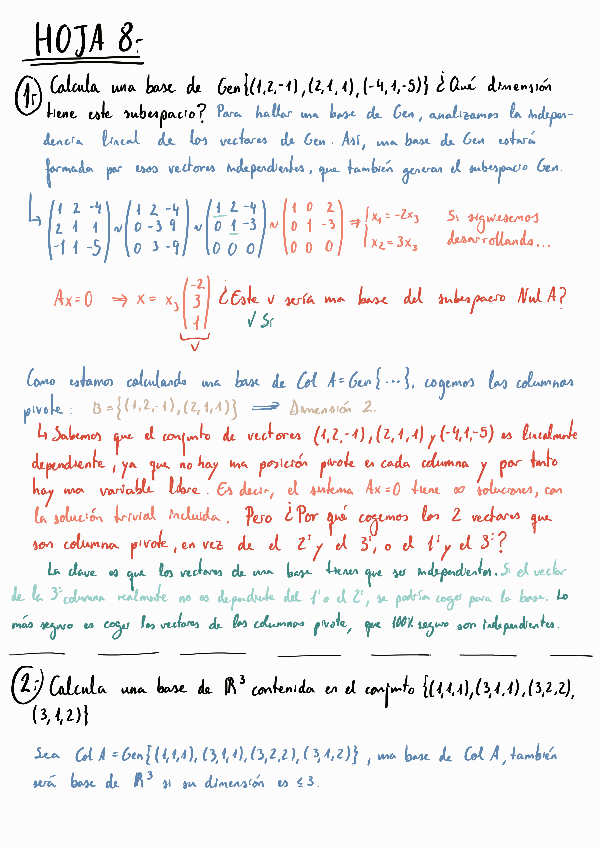 HOJA 8:
1: Calcula una base de Gen{(1,2,-1),(2,1,1),(-4,1,-5)} ¿Qué dimensión
tiene este subespacio? Para hallar una base de Gen, analizamos la indepen-
dencia lineal de los vectores de Gen. Así, una base de Gen estará
formada por esos vectores independientes, que también generan el subespacio Gen.
(1 2 -4 / 2 1 1 / -1 1 -5) ~ (1 2 -4 / 0 -3 9 / 0 3 -9) ~ (1 2 -4 / 0 1 -3 / 0 0 0) ~ (1 0 2 / 0 1 -3 / 0 0 0) ⇒ { x₁ = -2x₃ / x₂ = 3x₃ Si siguiesemos
desarrollando...
Ax=0 ⇒ x = x₃ (-2 / 3 / 1) ¿Este v sería una base del subespacio Nul A?
v
√ Sí
Como estamos calculando una base de Col A = Gen{...}, cogemos las columnas
pivote: B = {(1,2,-1),(2,1,1)} ⟹ Dimensión 2.
↳ Sabemos que el conjunto de vectores (1,2,-1),(2,1,1) y (-4,1,-5) es linealmente
dependiente, ya que no hay una posición pivote en cada columna y por tanto
hay una variable libre. Es decir, el sistema Ax=0 tiene ∞ soluciones, con
la solución trivial incluida. Pero ¿Por qué cogemos los 2 vectores que
son columna pivote, en vez de el 2º y el 3º, o el 1º y el 3º?
La clave es que los vectores de una base tienen que ser independientes. Si el vector
de la 3ª columna realmente no es dependiente del 1º o el 2º, se podría coger para la base. Lo
más seguro es coger los vectores de las columnas pivote, que 100% seguro son independientes.
2: Calcula una base de ℝ³ contenida en el conjunto {(1,1,1),(3,1,1),(3,2,2),
(3,1,2)}
Sea Col A = Gen{(1,1,1),(3,1,1),(3,2,2),(3,1,2)}, una base de Col A, también
será base de ℝ³ si su dimensión es ≤ 3.